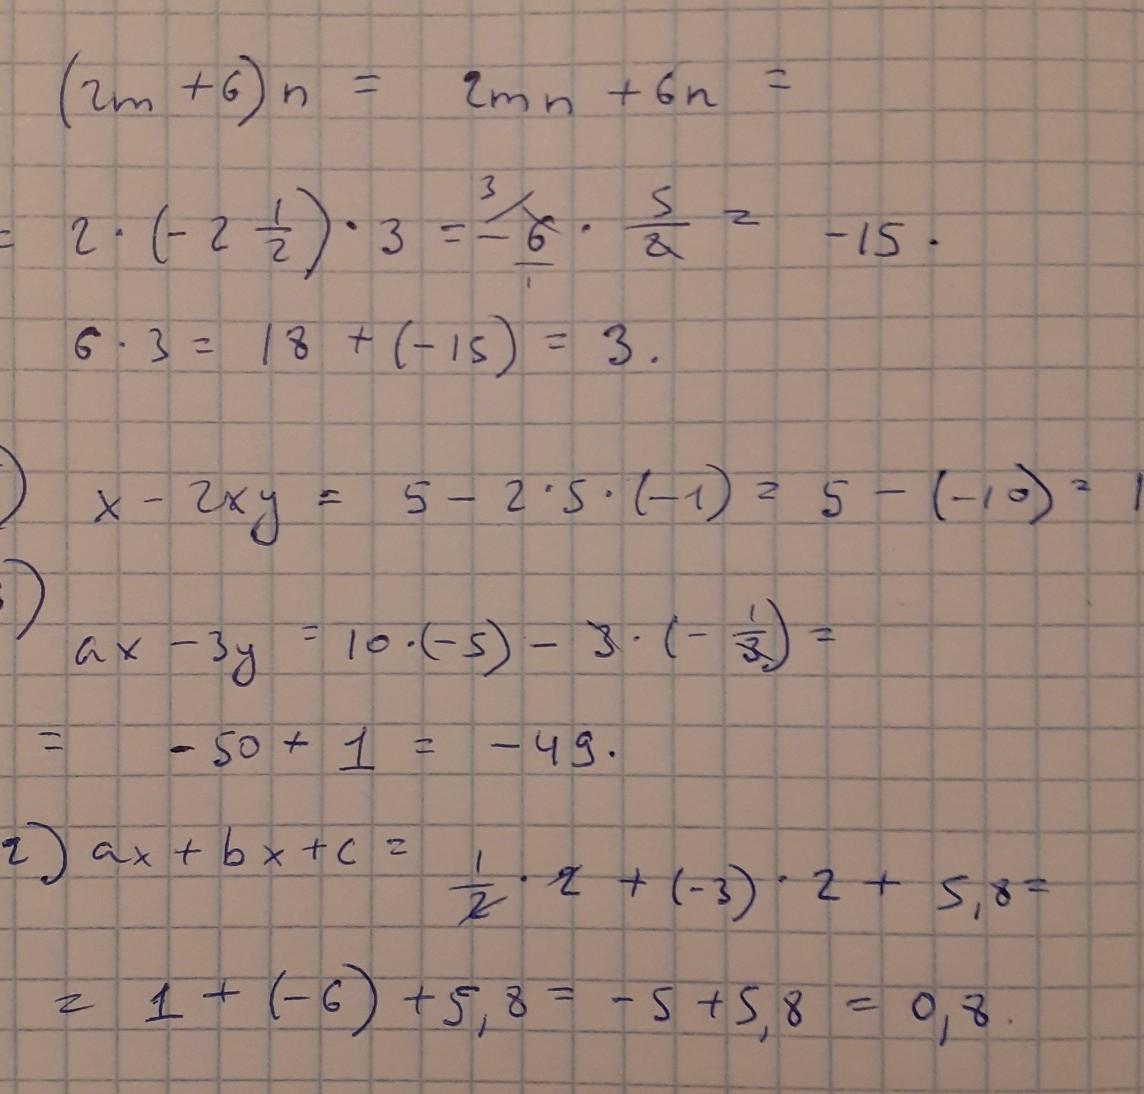 (2m + 6) n = 2mn + 6n =
= 2 · (-2 1/2) · 3 = -6/1 · 5/2 = -15.
6 · 3 = 18 + (-15) = 3.
) x - 2xy = 5 - 2 · 5 · (-1) = 5 - (-10) = 1
)
ax - 3y = 10 · (-5) - 3 · (- 1/3) =
= -50 + 1 = -49.
2) ax + bx + c = 1/2 · 2 + (-3) · 2 + 5,8 =
= 1 + (-6) + 5,8 = -5 + 5,8 = 0,8.